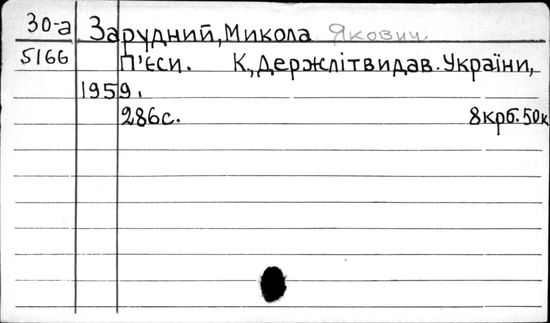 30-а Зарудний, Микола Якович.
5166 П'єси. К, Держлітвидав. України,
1959.
286с. 8крб. 50к